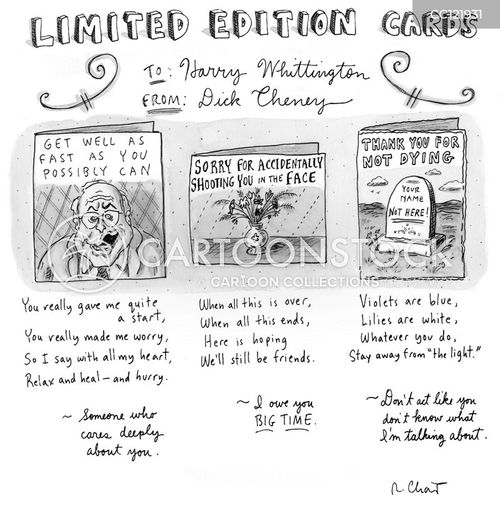 CC121931
LIMITED EDITION CARDS
TO: Harry Whittington
FROM: Dick Cheney
GET WELL AS
FAST AS YOU
POSSIBLY CAN
SORRY FOR ACCIDENTALLY
SHOOTING YOU IN THE FACE
THANK YOU FOR
NOT DYING
YOUR
NAME
NOT HERE!
CARTOONSTOCK
CARTOON COLLECTIONS
You really gave me quite
a start,
You really made me worry,
So I say with all my heart,
Relax and heal — and hurry.
~ Someone who
cares deeply
about you.
When all this is over,
When all this ends,
Here is hoping
We'll still be friends.
~ I owe you
BIG TIME.
Violets are blue,
Lilies are white,
Whatever you do,
Stay away from "the light."
~ Don't act like you
don't know what
I'm talking about.
R. Chast